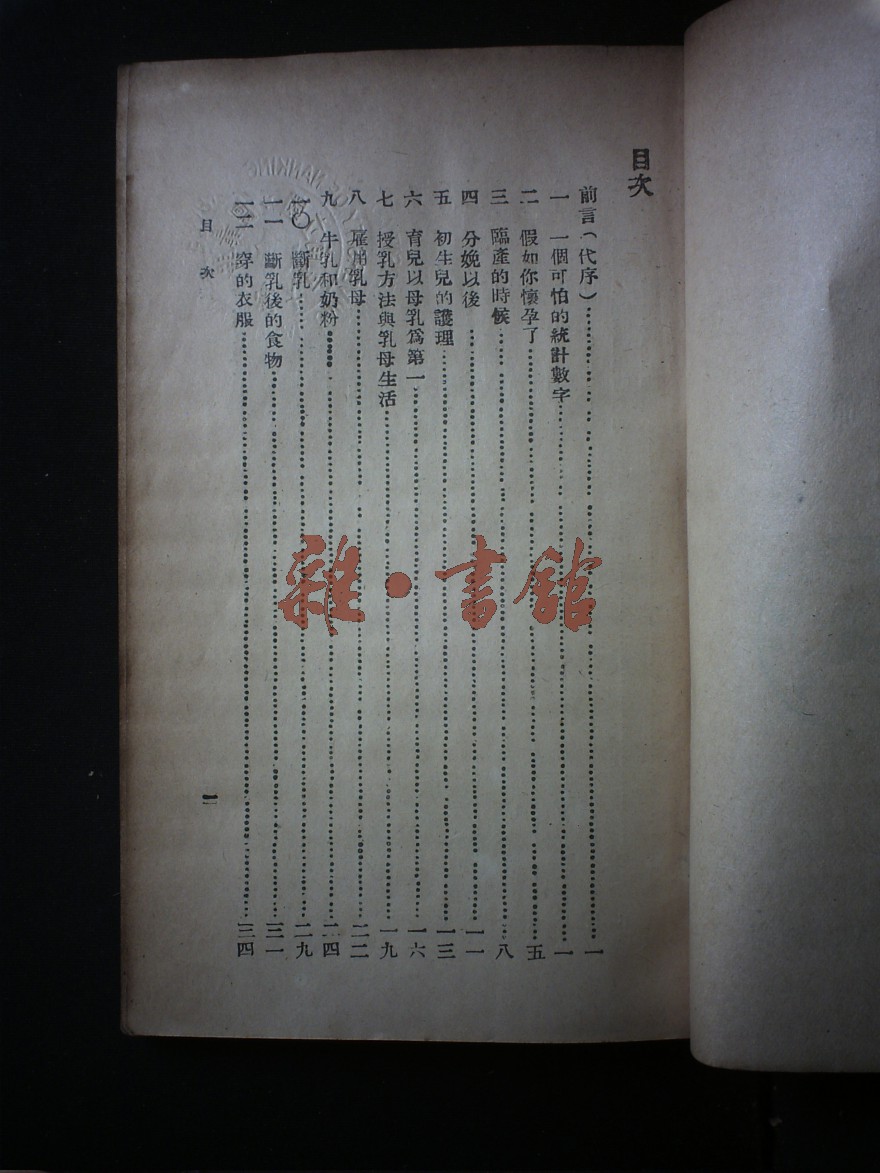 目次
前言(代序)……一
一　一個可怕的統計數字……一
二　假如你懷孕了……五
三　臨產的時候……八
四　分娩以後……一一
五　初生兒的護理……一三
六　育兒以母乳爲第一……一六
七　授乳方法與乳母生活……一九
八　雇用乳母……二二
九　牛乳和奶粉……二四
一〇　斷乳……二九
一一　斷乳後的食物……三一
一二　穿的衣服……三四
目次
一
雜·書館
NANKING